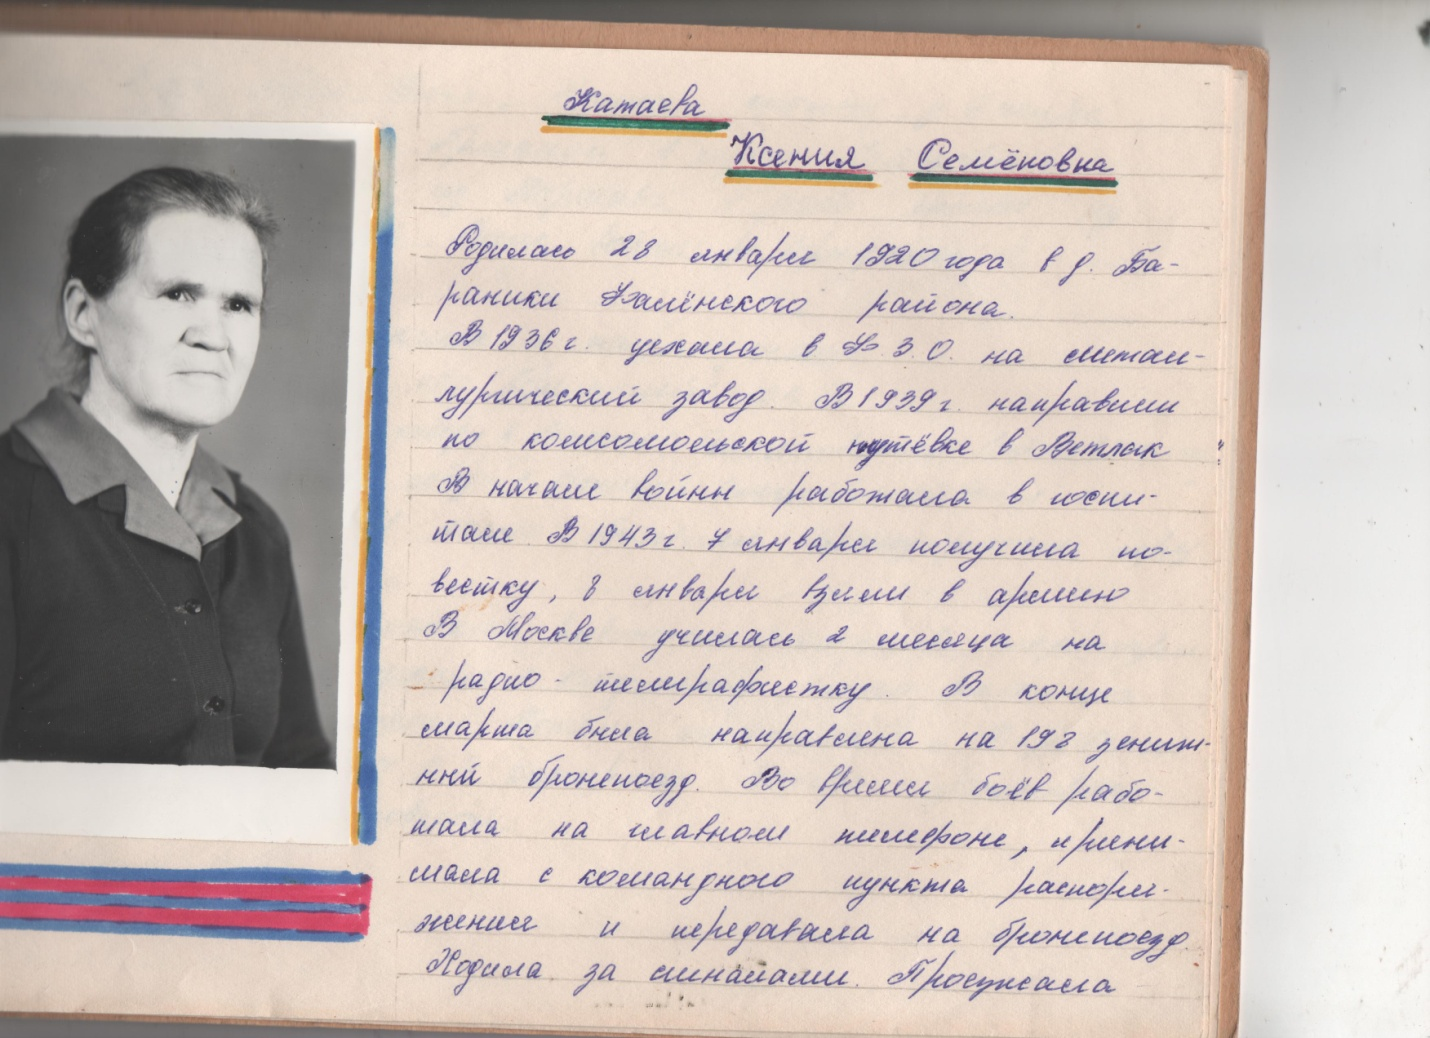 Катаева
Ксения Семёновна
Родилась 28 января 1920 года в д. Ба-
раники Фалёнского района.
В 1936 г. уехала в Ф.З.О. на метал-
лургический завод. В 1939 г. направили
по комсомольской путёвке в
В начале войны работала в госпи-
тале. В 1943 г. 7 января получила по-
вестку, 8 января взяли в армию
В Москве училась 2 месяца на
радио-телеграфистку. В конце
марта была направлена на 198 зенит-
ный бронепоезд. Во время боёв рабо-
тала на главном телефоне, прини-
мала с командного пункта распоря-
жения и передавала на бронепоезд.
Ходила за сигналами. Прослужала